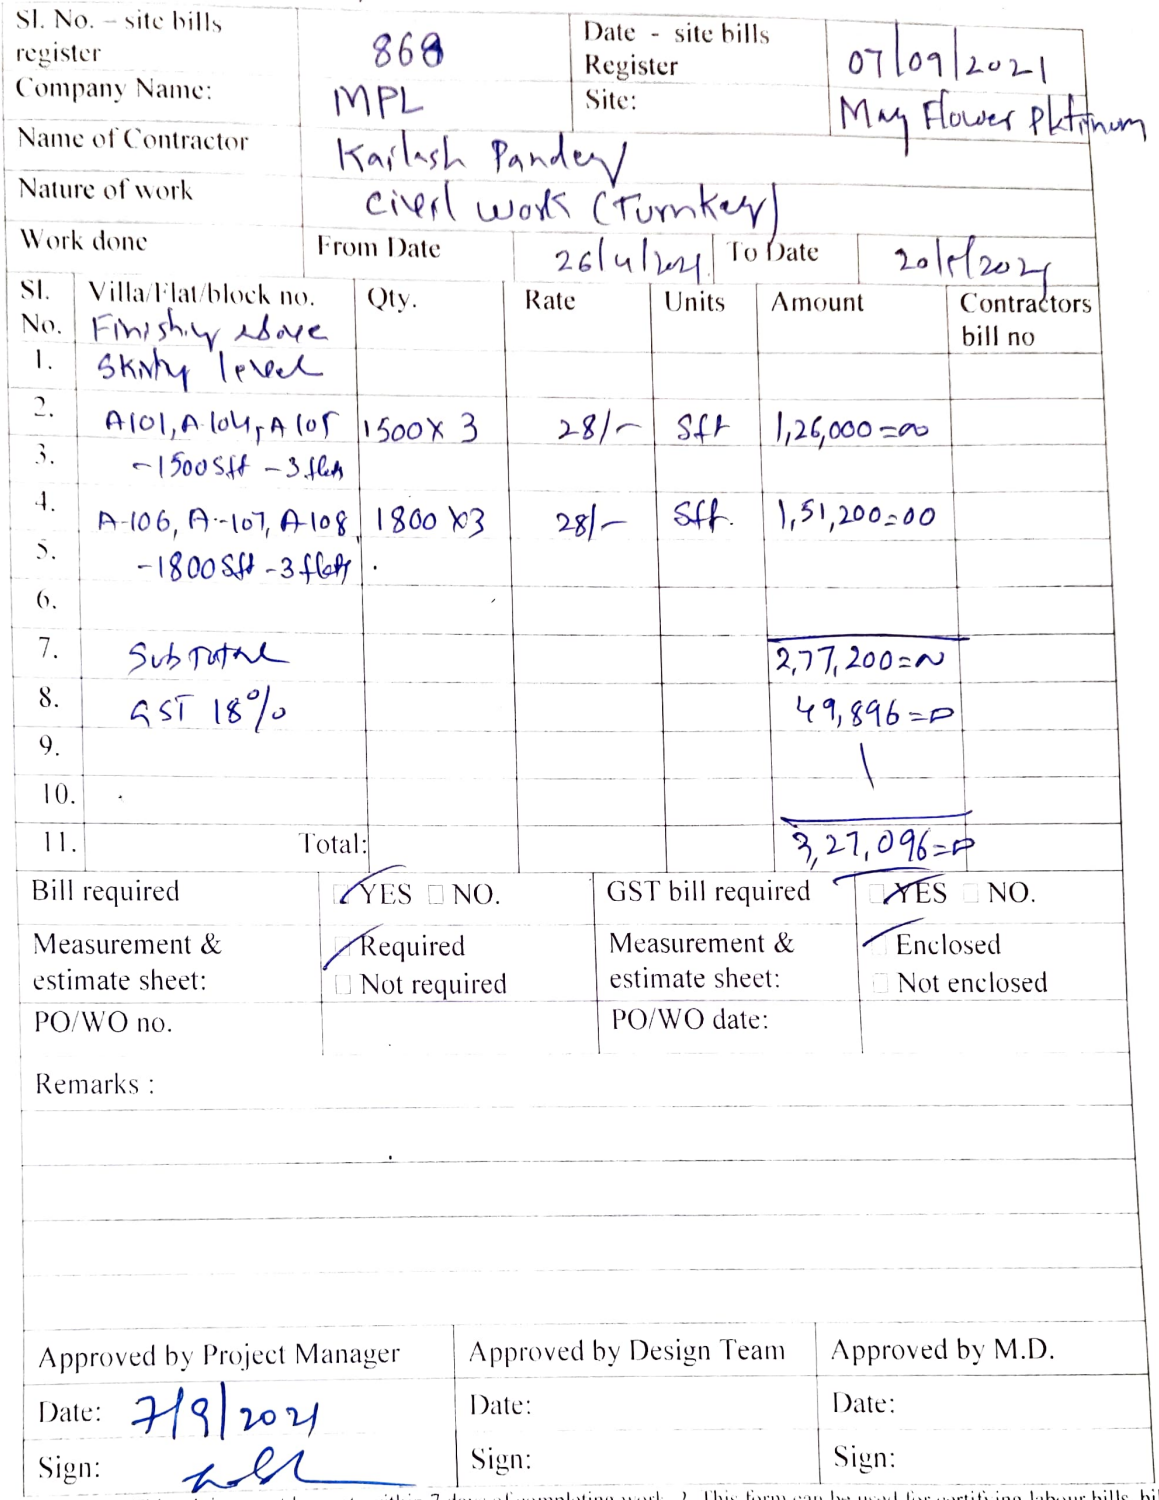 Sl. No. – site bills register 868 Date - site bills Register 07/09/2021
Company Name: MPL Site: May Flower Platinum
Name of Contractor Kailash Pandey
Nature of work Civil work (Turnkey)
Work done From Date 26/4/2021 To Date 20/5/2021
Sl. No. Villa/Flat/block no. Qty. Rate Units Amount Contractors bill no
Finishing above
1. Skirting level
2. A101, A-104, A105 1500 x 3 28/- Sft 1,26,000=00
3. -1500 Sft -3 flats
4. A-106, A-107, A-108 1800 x3 28/- Sft. 1,51,200=00
5. -1800 Sft -3 flats
6.
7. Sub Total 2,77,200=00
8. GST 18% 49,896=00
9.
10.
11. Total: 3,27,096=00
Bill required YES NO. GST bill required YES NO.
Measurement & estimate sheet: Required Measurement & estimate sheet: Enclosed
Not required Not enclosed
PO/WO no. PO/WO date:
Remarks :
Approved by Project Manager Approved by Design Team Approved by M.D.
Date: 7/9/2021 Date: Date:
Sign: Sign: Sign:
7 days of completing work. 2. This form can be used for certifying labour bills,